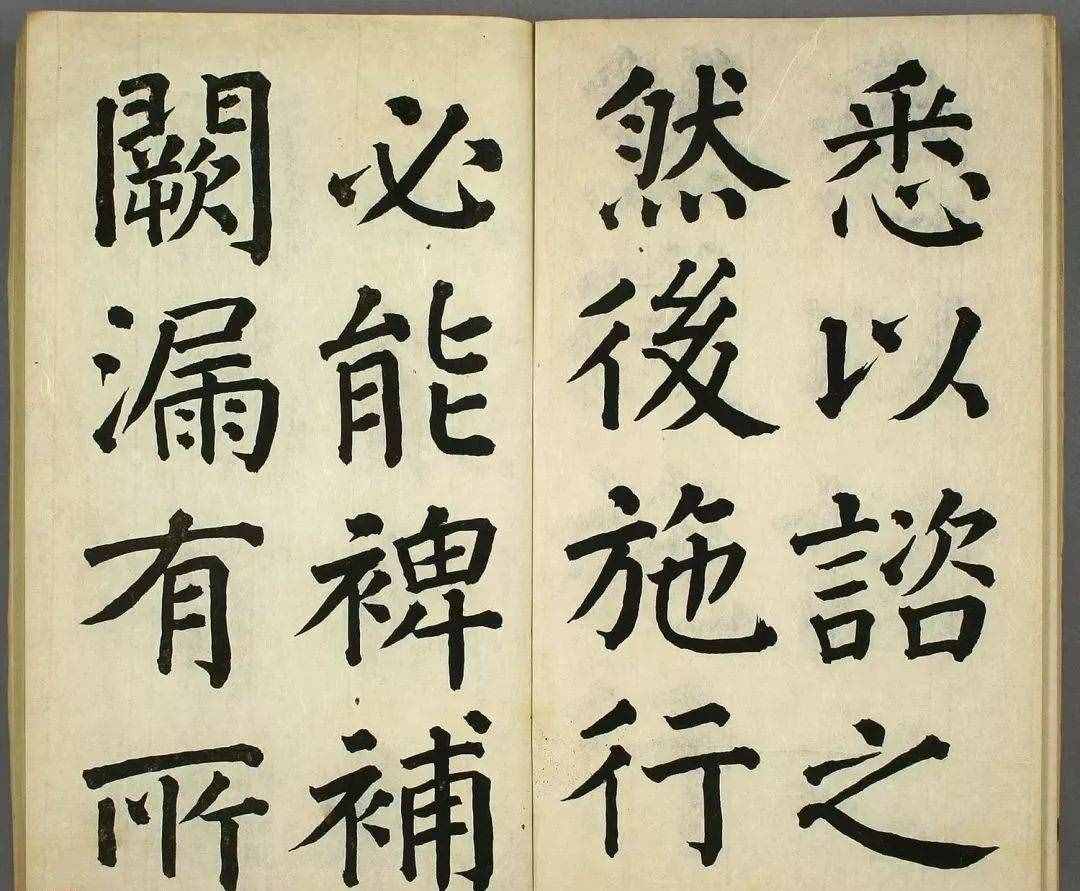 悉以諮之
然後施行
必能裨補
闕漏有所